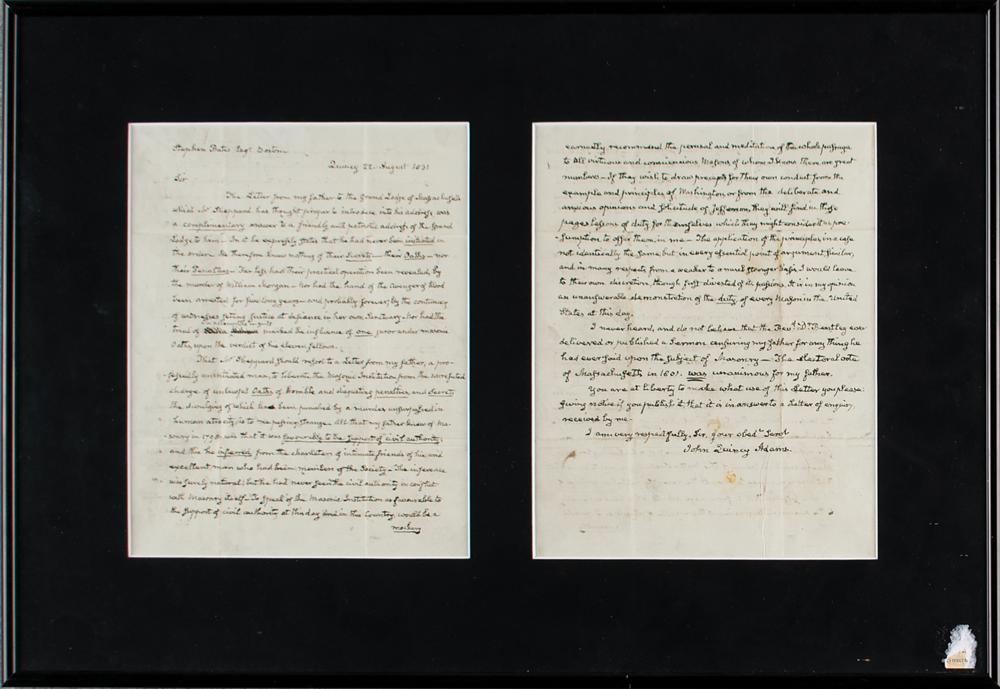 Stephen Bates Esqr. Boston
Quincy 22. August 1831
Sir
The Letter from my father to the Grand Lodge of Massachusetts
which Mr Sheppard has thought proper to introduce into his address was
a complimentary answer to a friendly and patriotic address of the Grand
Lodge to him. In it he expressly states that he had never been initiated in
the order. He therefore knew nothing of their Secrets — their Oaths — nor
their Penalties — Far less had their practical operation been revealed, by
the murder of William Morgan — Nor had the hand of the Avenger of blood
been arrested for five long years — and probably forever, by the contumacy
of witnesses setting justice at defiance in her own Sanctuary. Nor had the
trial of marked the influence of one juror under masonic
Oaths, upon the verdict of his eleven fellows.
That Mr Sheppard should resort to a Letter from my father, a pro-
fessedly uninitiated man, to liberate the Masonic Institution from the unrefuted
charge of unlawful Oaths, of horrible and disgusting penalties, and Secrets
the divulging of which has been punished by a murder unsurpassed in
human atrocity, is to me passing strange. All that my father knew of Ma-
sonry in 1798 was that it was favourable to the support of civil authority;
and this he inferred from the characters of intimate friends of his and
excellent men who had been members of the Society — The inference
was surely natural; but he had never seen the civil authority in conflict
with Masonry itself. To speak of the Masonic Institution as favourable to
the support of civil authority at this day and in this Country, would be a
mockery
earnestly recommend the perusal and meditation of the whole passage
to all virtuous and conscientious Masons, of whom I know there are great
numbers — If they wish to draw precepts for their own conduct from the
example and principles of Washington or from the deliberate and
anxious opinions and solicitude of Jefferson, they will find in those
pages lessons of duty for themselves which they might consider it as pre-
sumption to offer them, in me — The application of the principles, in a case
not identically the same, but in every essential point of argument, similar,
and in many respects from a weaker to a much stronger basis I would leave
to their own discretion, though first divested of its passions. It is in my opinion
an unanswerable demonstration of the duty, of every Mason in the United
States at this day.
I never heard, and do not believe that the Revd. Dr. Bentley ever
delivered or published a Sermon censuring my father for any thing he
has ever said upon the subject of Masonry — The Electoral vote
of Massachusetts in 1801. was unanimous for my father.
You are at liberty to make what use of this Letter you please:
giving notice if you publish it, that it is in answer to a Letter of enquiry,
received by me
I am very respectfully, Sir, your obedt. Servt
John Quincy Adams.